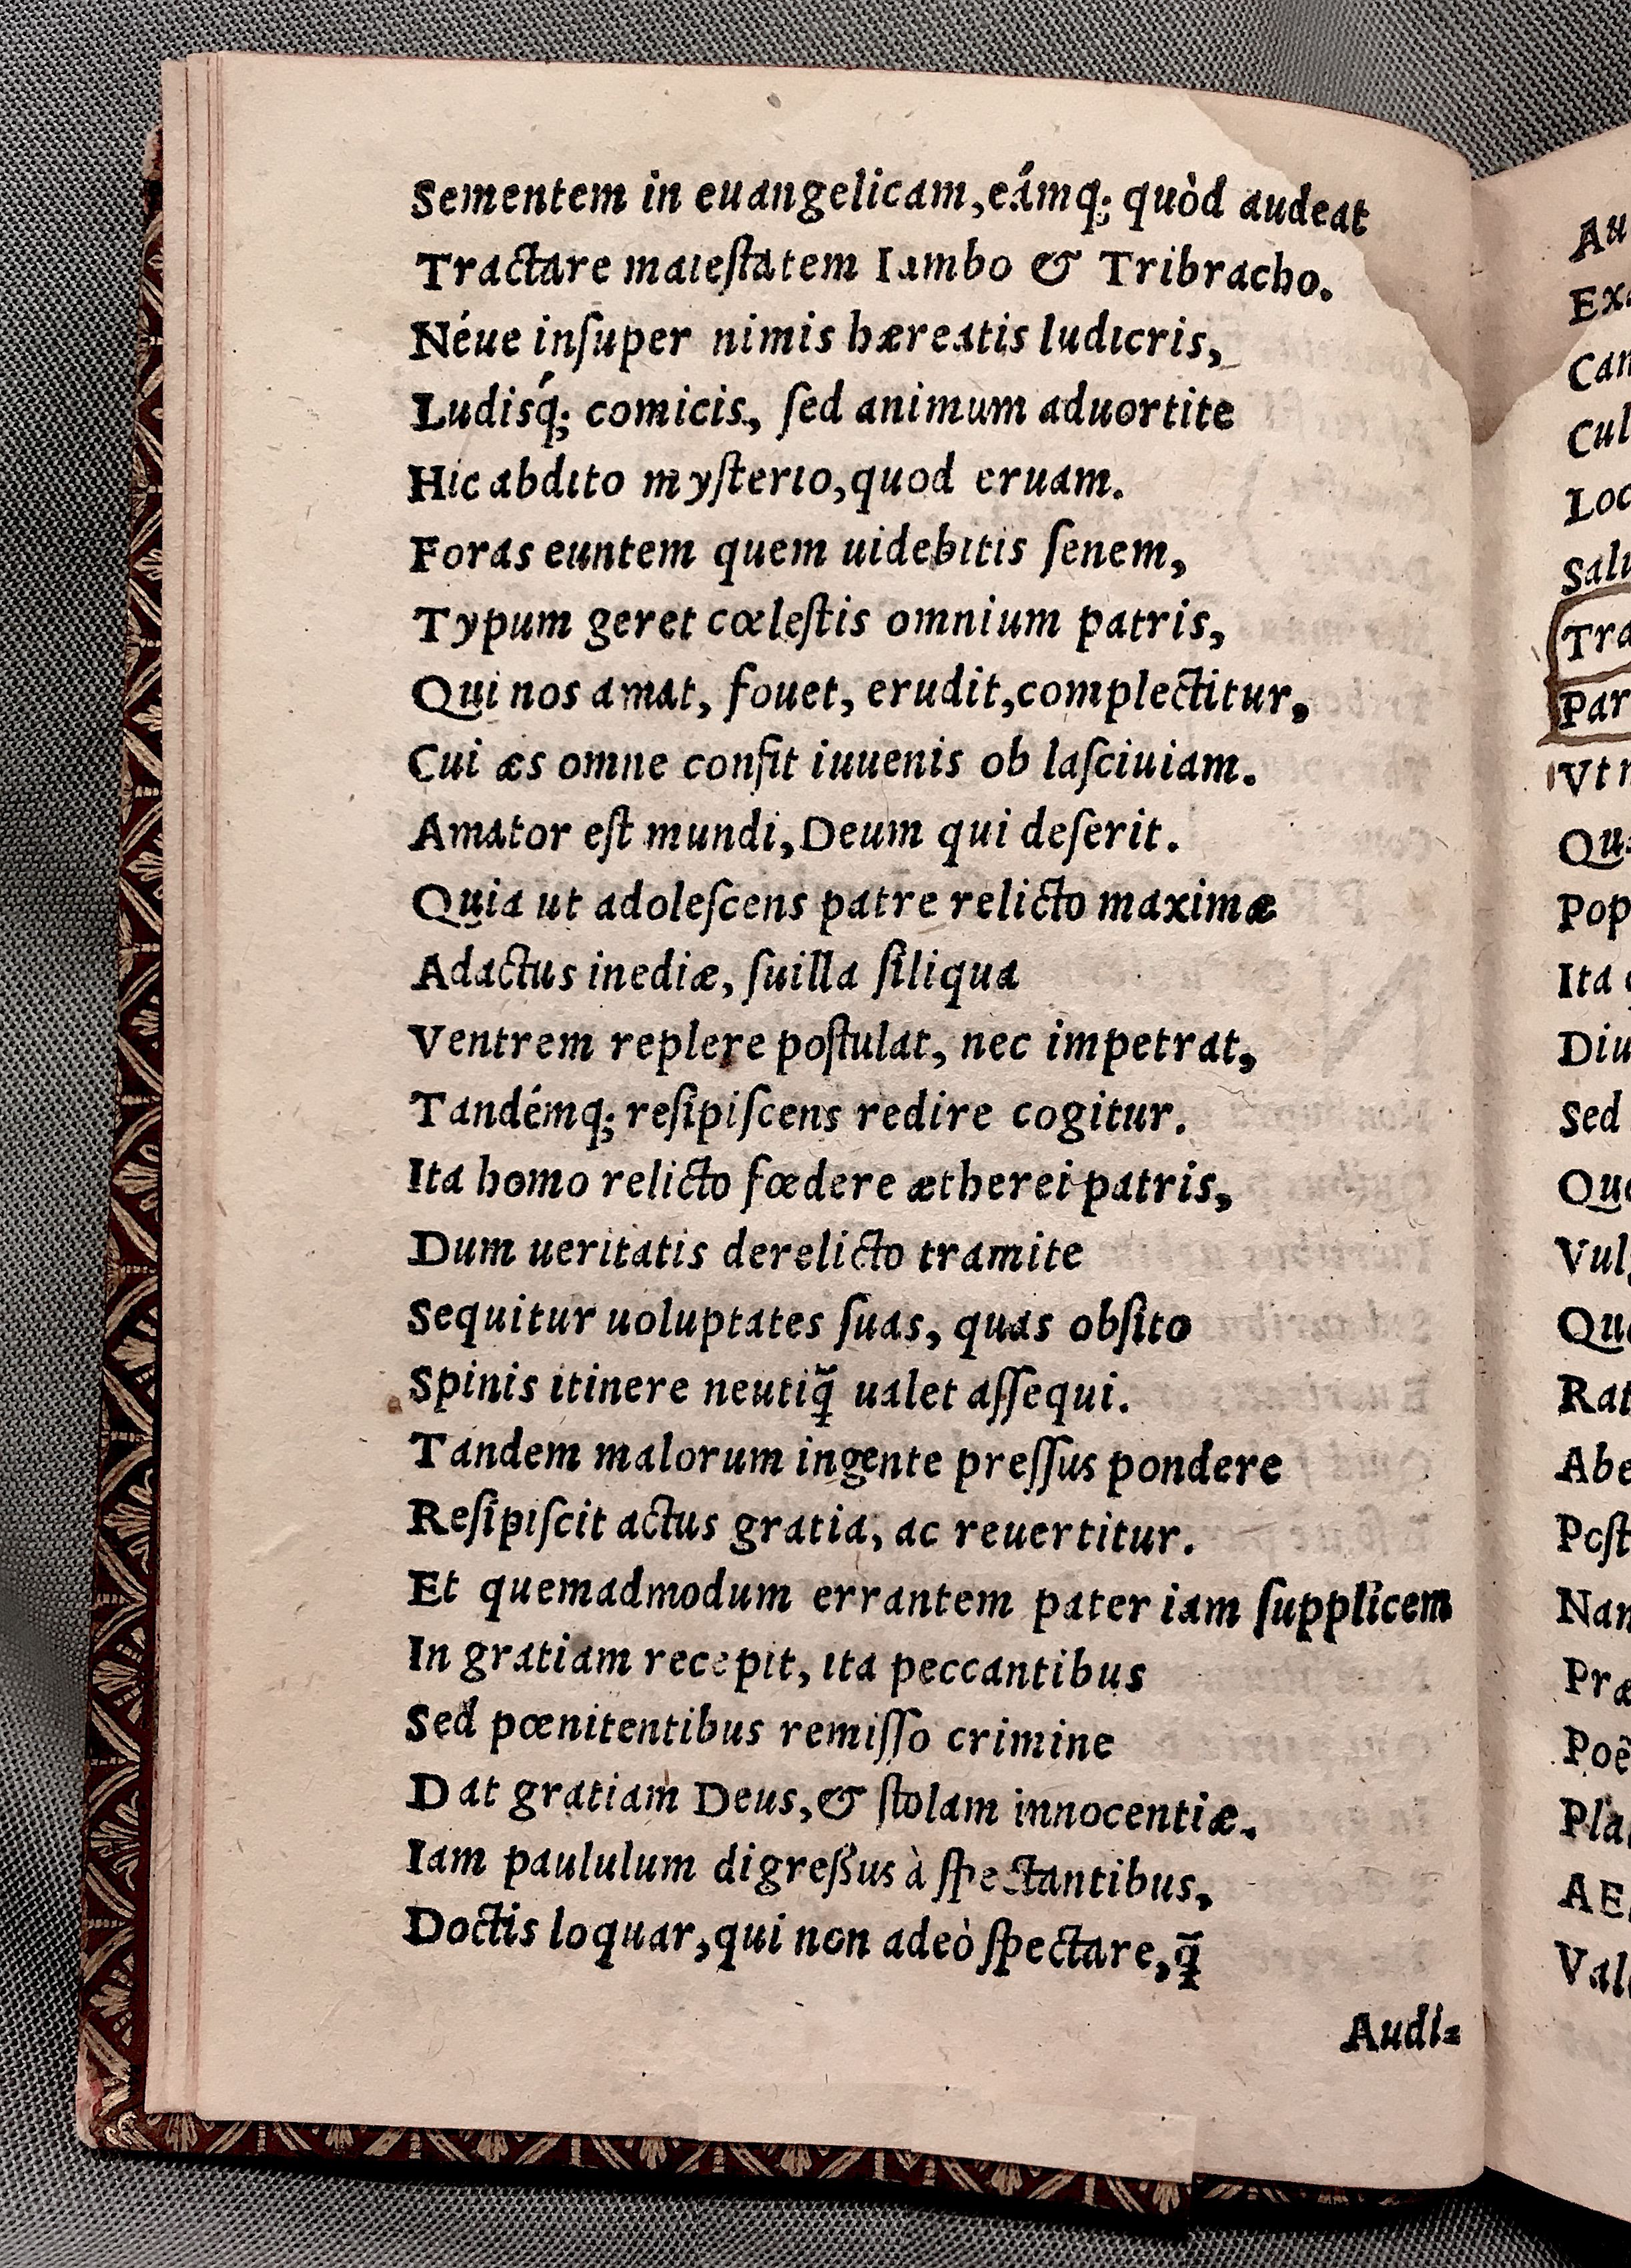 Sementem in euangelicam, eámq; quòd audeat
Tractare maieſtatem Iambo & Tribracho.
Néue inſuper nimis hæreatis ludicris,
Ludisq́; comicis, ſed animum aduortite
Hic abdito myſterio, quod eruam.
Foras euntem quem uidebitis ſenem,
Typum geret cœleſtis omnium patris,
Qui nos amat, fouet, erudit, complectitur,
Cui æs omne confit iuuenis ob laſciuiam.
Amator eſt mundi, Deum qui deſerit.
Quia ut adoleſcens patre relicto maximæ
Adactus inediæ, ſuilla ſiliqua
Ventrem replere poſtulat, nec impetrat,
Tandémq; reſipiſcens redire cogitur.
Ita homo relicto fœdere ætherei patris,
Dum ueritatis derelicto tramite
Sequitur uoluptates ſuas, quas obſito
Spinis itinere neutiq̃ ualet aſſequi.
Tandem malorum ingente preſſus pondere
Reſipiſcit actus gratia, ac reuertitur.
Et quemadmodum errantem pater iam ſupplicem
In gratiam recepit, ita peccantibus
Sed pœnitentibus remiſſo crimine
Dat gratiam Deus, & ſtolam innocentiæ.
Iam paululum digreſſus à ſpectantibus,
Doctis loquar, qui non adeò ſpectare, q̃
Audi=
Au
Exa
Can
Cul
Loc
Salu
Tra
Par
Vt n
Qua
Pop
Ita
Diu
Sed
Quo
Vul
Qua
Rat
Abe
Poſt
Nan
Præ
Poë
Pla
AE
Val